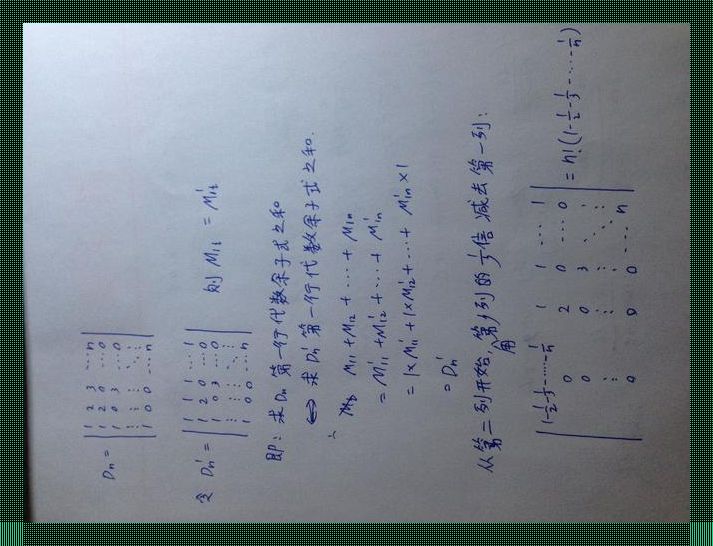 Dn = | 1 2 3 ⋯ n |
| 1 2 0 ⋯ 0 |
| 1 0 3 ⋯ 0 |
| ⋮ ⋮ ⋮ ⋱ ⋮ |
| 1 0 0 ⋯ n |
令 Dn' = | 1 1 1 ⋯ 1 |
| 1 2 0 ⋯ 0 |
| 1 0 3 ⋯ 0 |
| ⋮ ⋮ ⋮ ⋱ ⋮ |
| 1 0 0 ⋯ n |
则 M1i = M1i'
即：求 Dn 第一行代数余子式之和
⇔ 求 Dn' 第一行代数余子式之和.
∴ M11 + M12 + ⋯ + M1n
= M11' + M12' + ⋯ + M1n'
= 1×M11' + 1×M12' + ⋯ + M1n'×1
= Dn'
从第二列开始，用第j列的 1/j 倍减去第一列：
| (1-1/2-1/3-⋯-1/n) 1 1 ⋯ 1 |
| 0 2 0 ⋯ 0 |
| 0 0 3 ⋮ |
| ⋮ ⋮ ⋮ ⋱ ⋮ |
| 0 0 0 ⋯ n |
= n!(1-1/2-1/3-⋯-1/n)